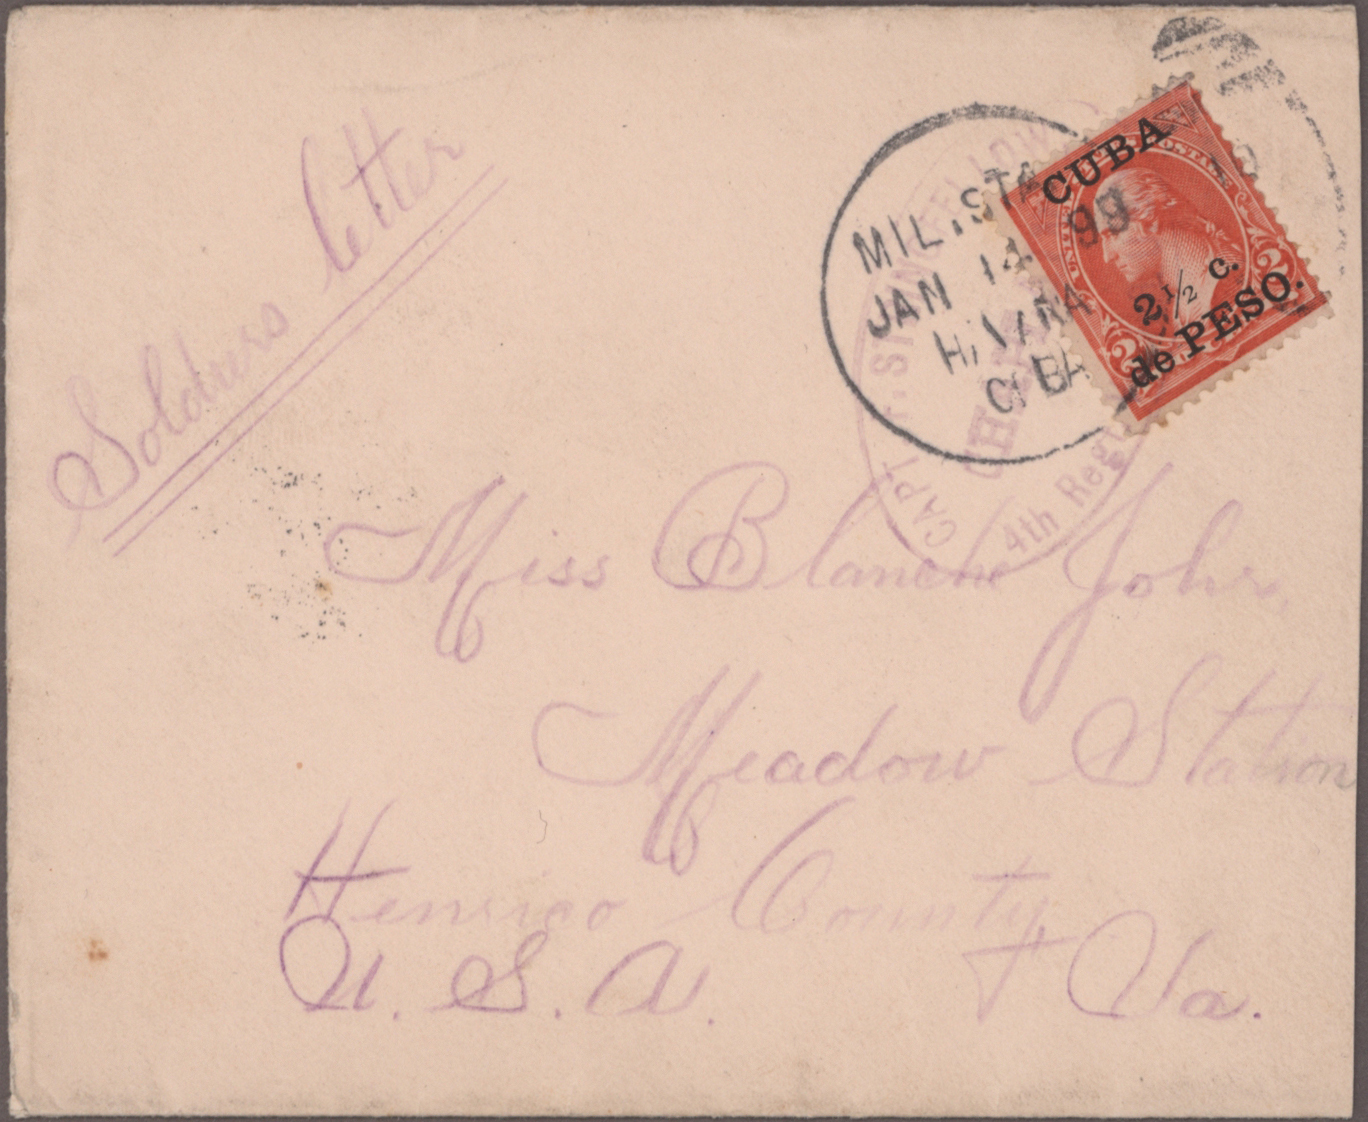 Soldiers letter
MIL. STA
JAN 14 99
HAVANA
CUBA
CAPT. F. STRINGFELLOW
CHAP
4th Regt
UNITED STATES POSTAGE
CUBA
2 1/2 c.
de PESO.
2 2
Miss Blanche John,
Meadow Station
Henrico County
U. S. A. Va.